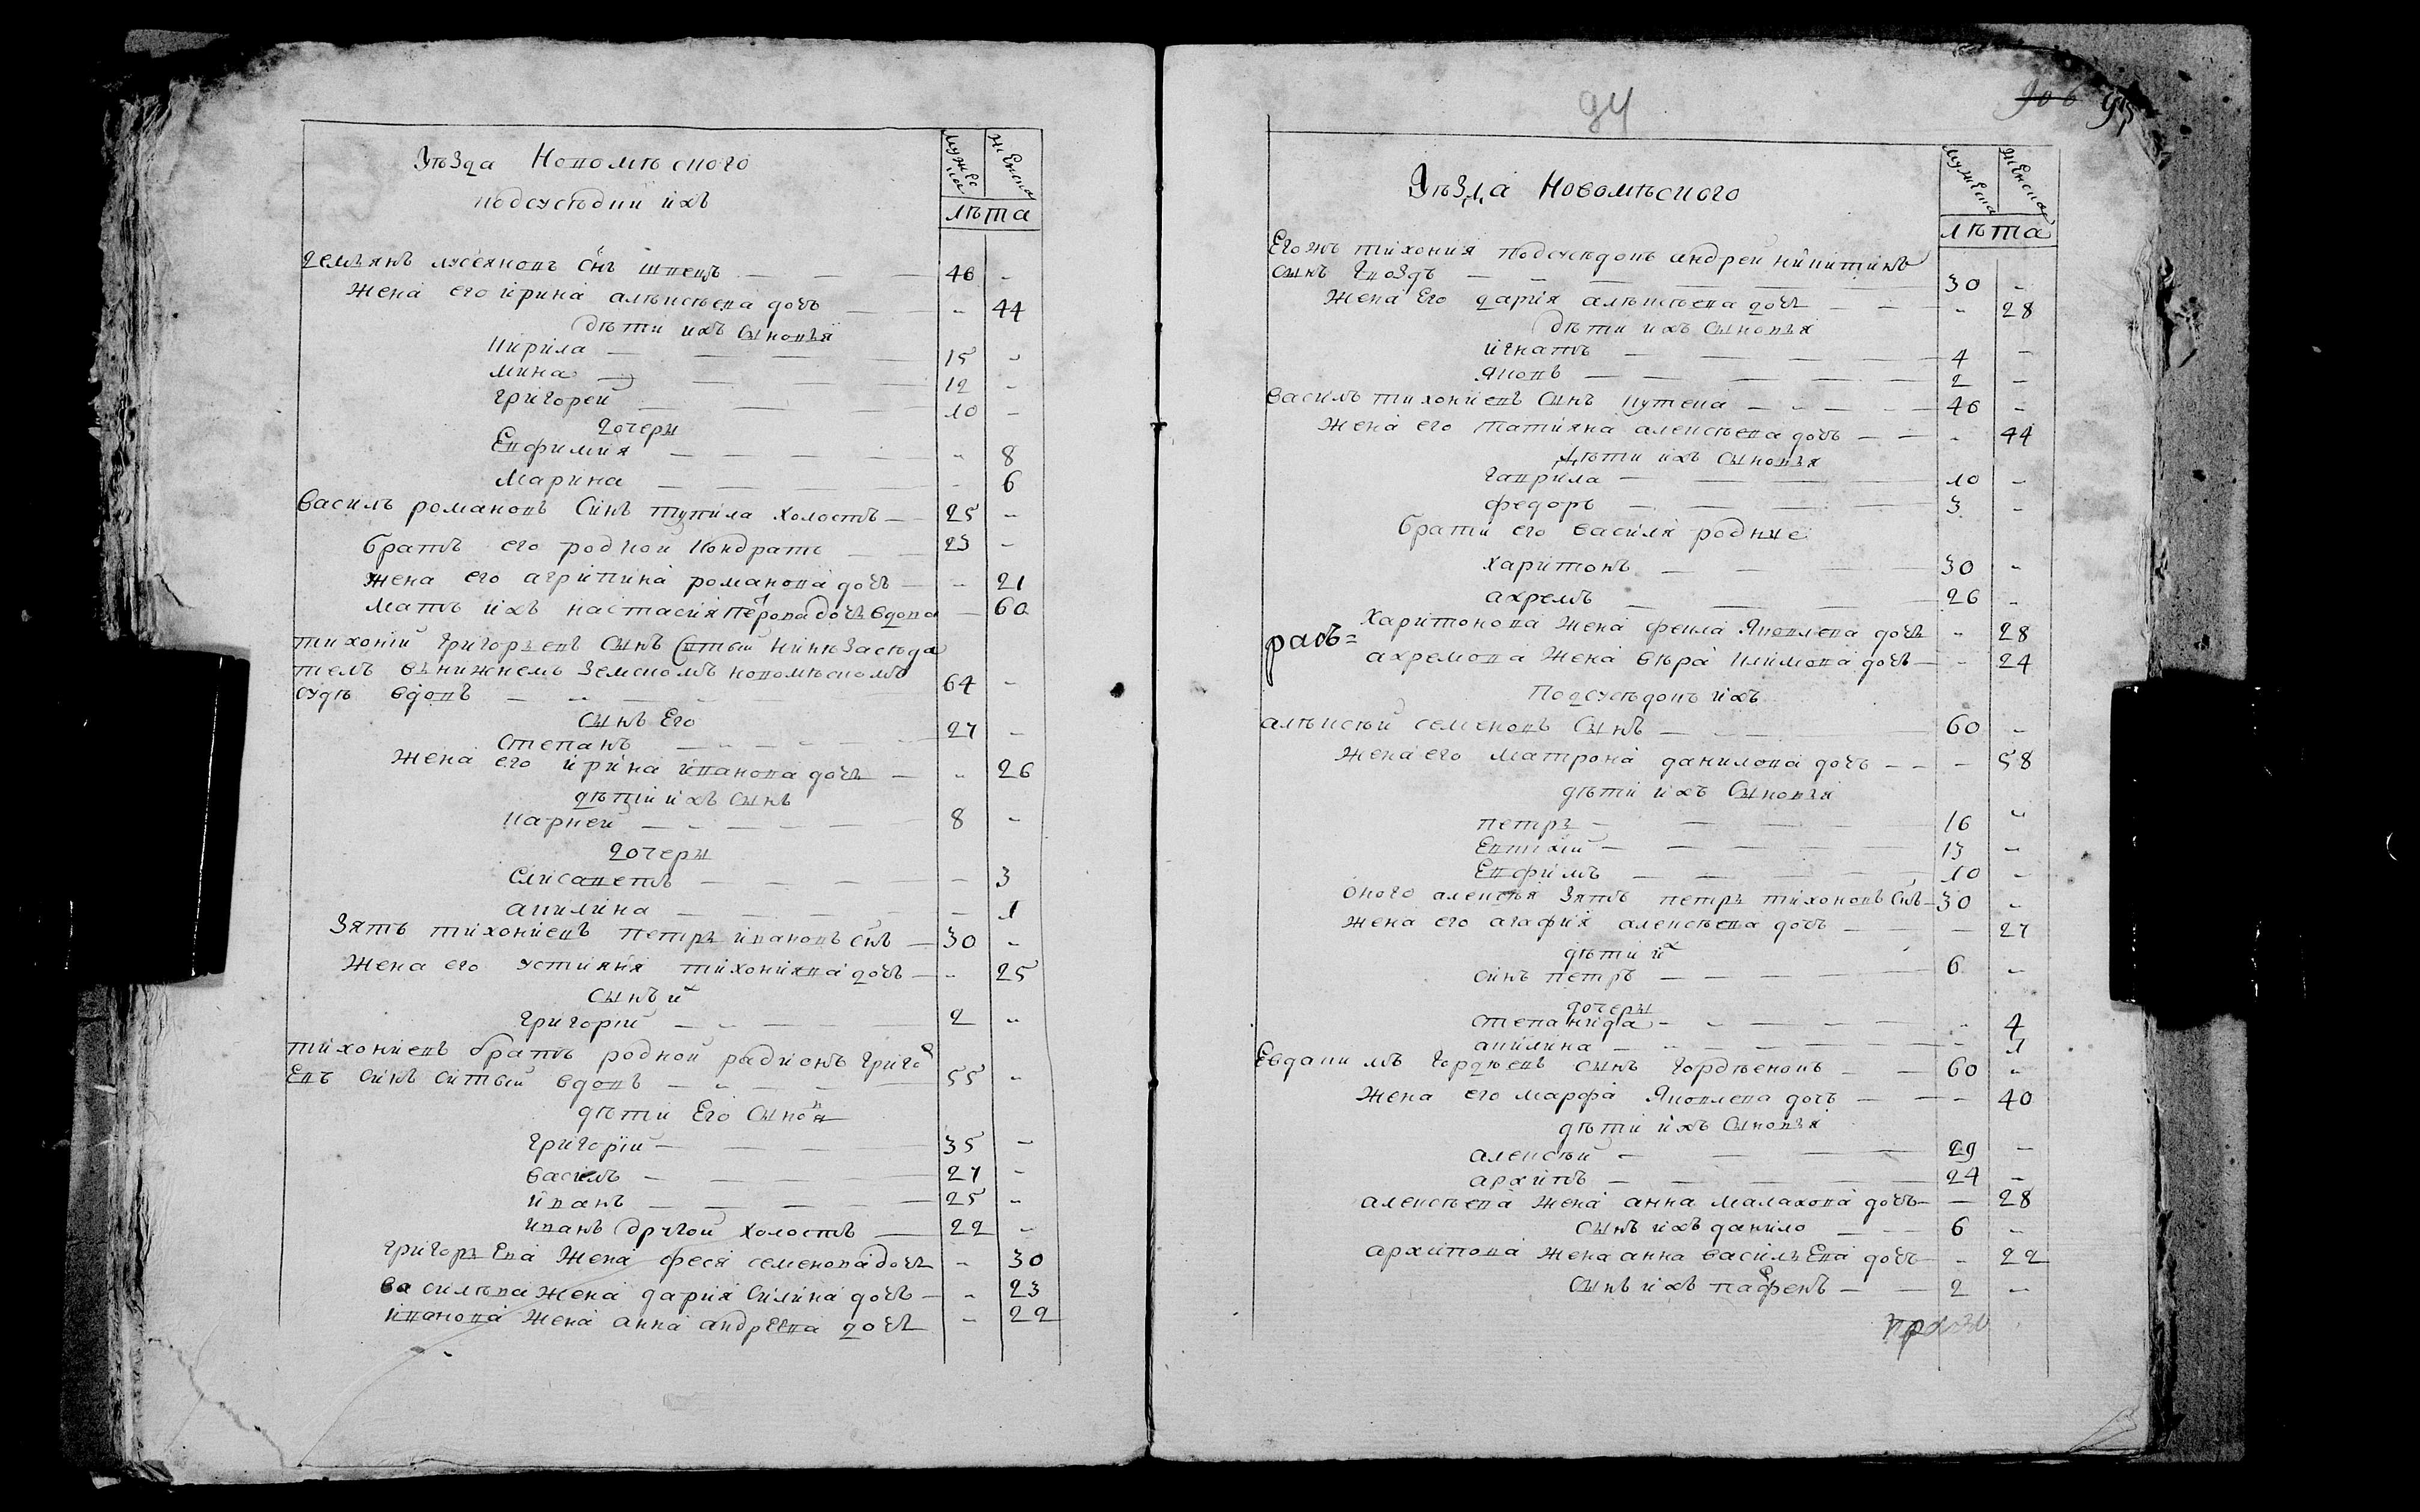 Уѣзда Новомѣского
мужеска
женска
подсуседки ихъ
лѣта
демянъ мусѣяновъ снъ швецъ — — — 46 -
жена его ирина алѣксѣева дочь — — - 44
дѣти ихъ сыновья
кирила — — — — 15 -
мина — — — — 12 -
григорей — — — 10 -
дочери
Евфимия — — — — - 8
марина — — — — - 6
василь романовъ синъ тупила холостъ — 25 -
братъ его родной кондратъ — 23 -
жена его агрипина романова дочь — - 21
мать ихъ настасия петрова дочь вдова — 60
тихоний григорьевъ сынъ ситый нинѣ заседа
тель въ нижнемъ земскомъ новомѣскомъ
судѣ вдовъ — - — — 64 -
сынъ Его
степанъ — - — - — 27 -
жена его ирина иванова дочь — - 26
дѣти ихъ сынъ
карней — - — - — 8 -
дочери
Елисаветъ — — — — - 3
акилина — — — — - 1
зять тихониевъ петръ ивановъ снъ — 30 -
жена его устиния тихониева дочь — - 25
сынъ их
григорий — - — — 2 -
тихониевъ братъ родной радионъ григо
Евъ синъ ситый вдовъ — - — — 55 -
дѣти Его сыновя
григорий — — — — 35 -
василь — — — — 27 -
иванъ — — — — 25 -
иванъ другой холостъ — 22 -
григорьева жена феся семенова дочь - 30
василѣва жена дария силина дочь — - 23
иванова жена анна андрѣева дочь - 22
94
906 95
Уѣзда Новомѣского
мужеска
женска
лѣта
Егожъ тихония подсусѣдокъ андрей никитинъ
сынъ гвоздь — — — — 30 -
жена Его дария алѣксѣева дочь — — - 28
дѣти ихъ сыновья
игнатъ — — — — 4 -
яковъ — — — — 2 -
василь тихониевъ сынъ кутепа — - — — 46 -
жена его татияна алексѣева дочь — — - 44
дѣти ихъ сыновья
гаврила — — — — 10 -
федоръ — — — — 3 -
брати его василя родние
харитонъ — — — 30 -
ахремъ — — — 26 -
харитонова жена фекла яковлева дочь - 28
ахремова жена вѣра климова дочь — - 24
подсусѣдокъ ихъ
алѣксѣй семеновъ сынъ — - — 60 -
жена его матрона данилова дочь — — - 58
дѣти ихъ сыновья
петръ — — — — 16 -
Евтихий — — — — 13 -
Евфимъ — — — — 10 -
оного алексѣя зять петръ тихоновъ снъ — 30 -
жена его агафия алексѣева дочь — — - 27
дѣти их
синъ петръ — — — — 6 -
дочери
степанида — - — - — - 4
акилина — - — - — - 1
Евдакимъ гордѣевъ сынъ гордѣенокъ — — 60 -
жена его марфа яковлева дочъ — — - 40
дѣти ихъ сыновья
алексѣй — — — — 29 -
архипъ — — — — 24 -
алексѣева жена анна малахова дочь — - 28
сынъ ихъ данило — — 6 -
архипова жена анна василѣва дочь — - 22
сынъ ихъ парфенъ — — 2 -